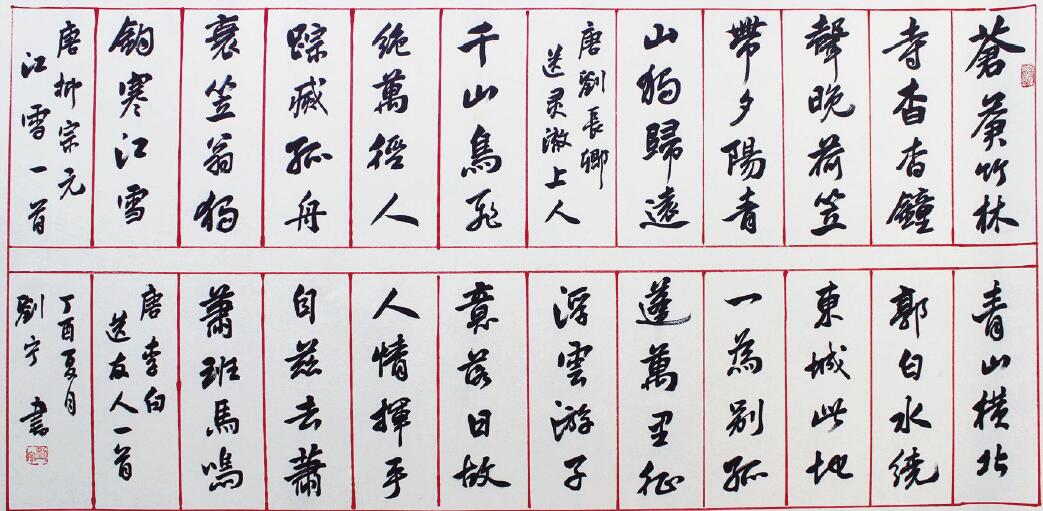 蒼蒼竹林
寺杳杳鐘
聲晚荷笠
帶夕陽青
山獨歸遠
唐劉長卿
送灵澈上人
千山鳥飛
絕萬徑人
蹤滅孤舟
蓑笠翁獨
釣寒江雪
唐柳宗元
江雪一首
青山橫北
郭白水繞
東城此地
一為別孤
蓬萬里征
浮雲游子
意落日故
人情揮手
自茲去蕭
蕭班馬鳴
唐李白
送友人一首
丁酉夏月
劉宁書